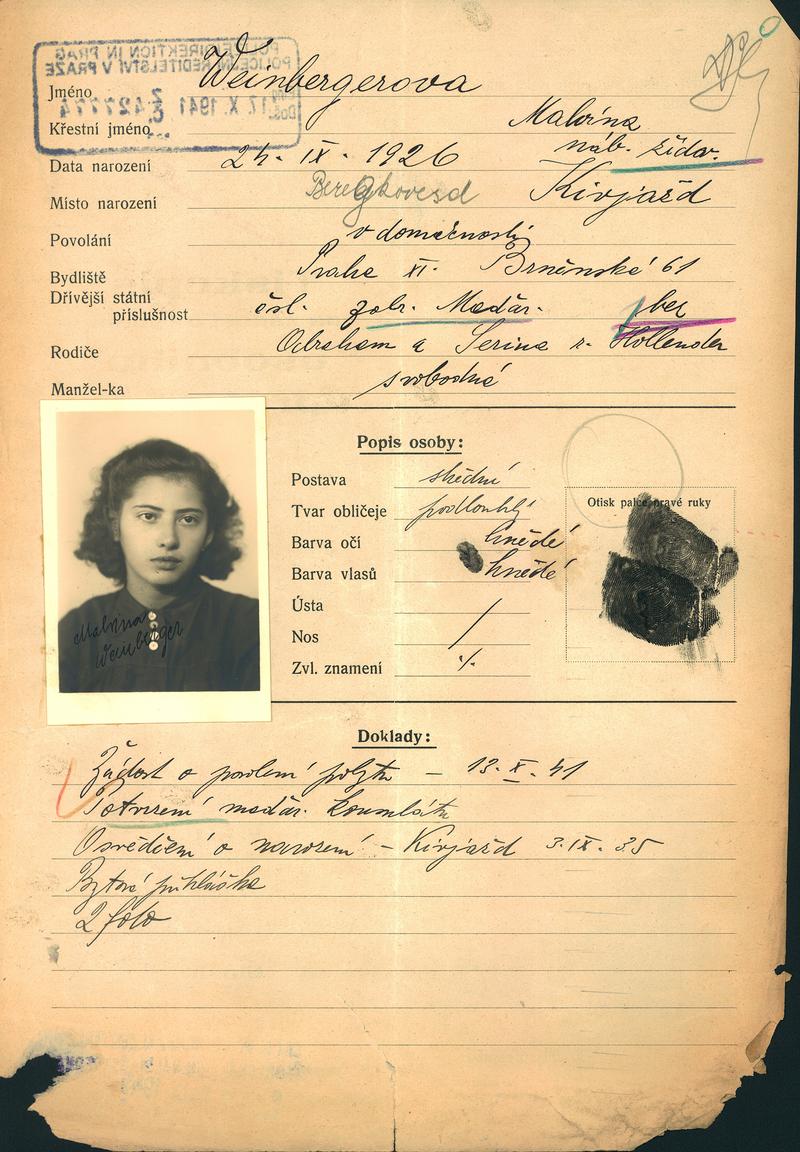 POLIZEIDIREKTION IN PRAG
POLICEJNÍ ŘEDITELSTVÍ V PRAZE
17. X. 1941 427774
Jméno Weinbergerova
Křestní jméno Malvína
náb. židov.
Data narození 24. IX. 1926
Místo narození Beregkovesd Kivjažd
Povolání v domácnosti
Bydliště Praha XI. Brněnská 61
Dřívější státní
příslušnost čsl. Maďar. bez
Rodiče Abraham a Serina r. Hollender
Manžel-ka svobodná
Popis osoby:
Postava střední
Tvar obličeje podlouhlý
Barva očí hnědé
Barva vlasů hnědé
Ústa /
Nos /
Zvl. znamení ./.
Otisk palce pravé ruky
Malvina
Weinberger
Doklady:
Žádost o povolení pobytu – 13. X. 41
Potvrzení maďar. konsulátu
Osvědčení o narození – Kivjažd 3. IX. 35
Bytová přihláška
2 foto